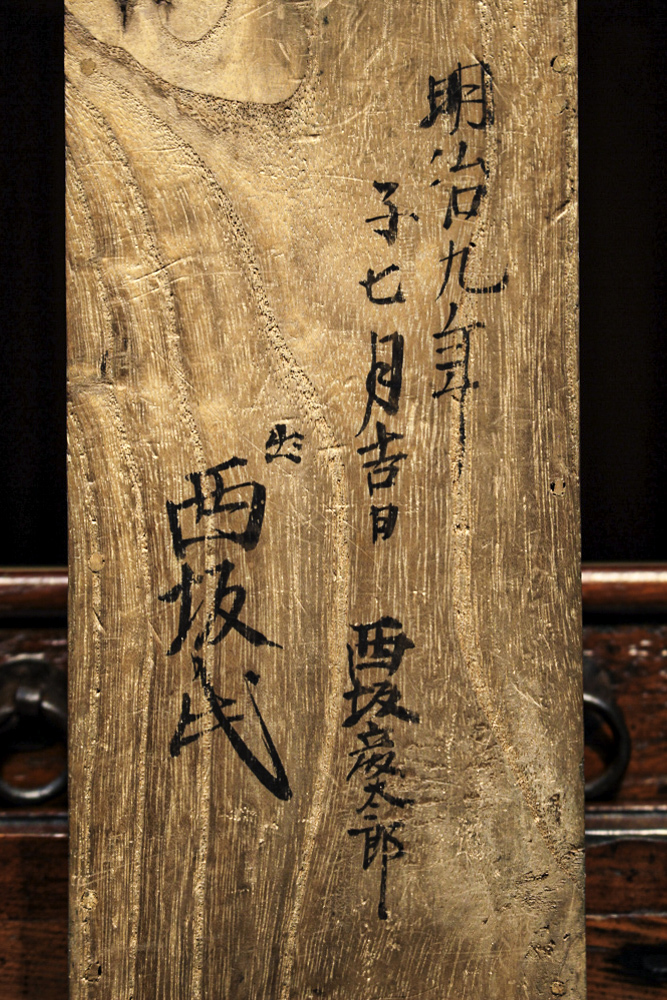 明治九年
子七月吉日
西坂慶太郎
西坂氏